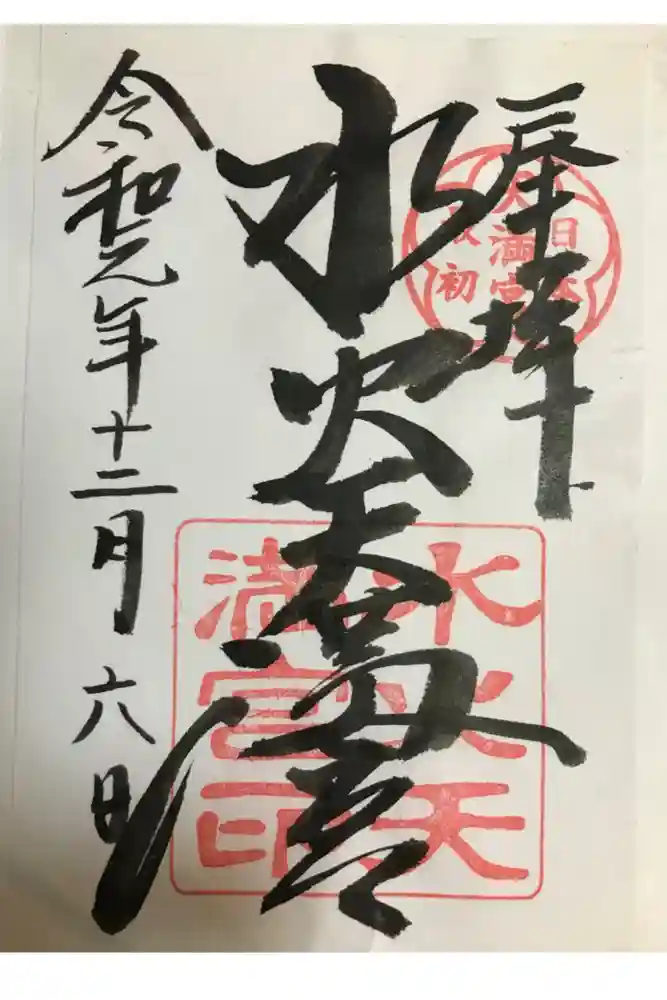 奉拝
日本
天満宮
最初
水火天満宮
水火天
満宮印
令和元年十二月六日